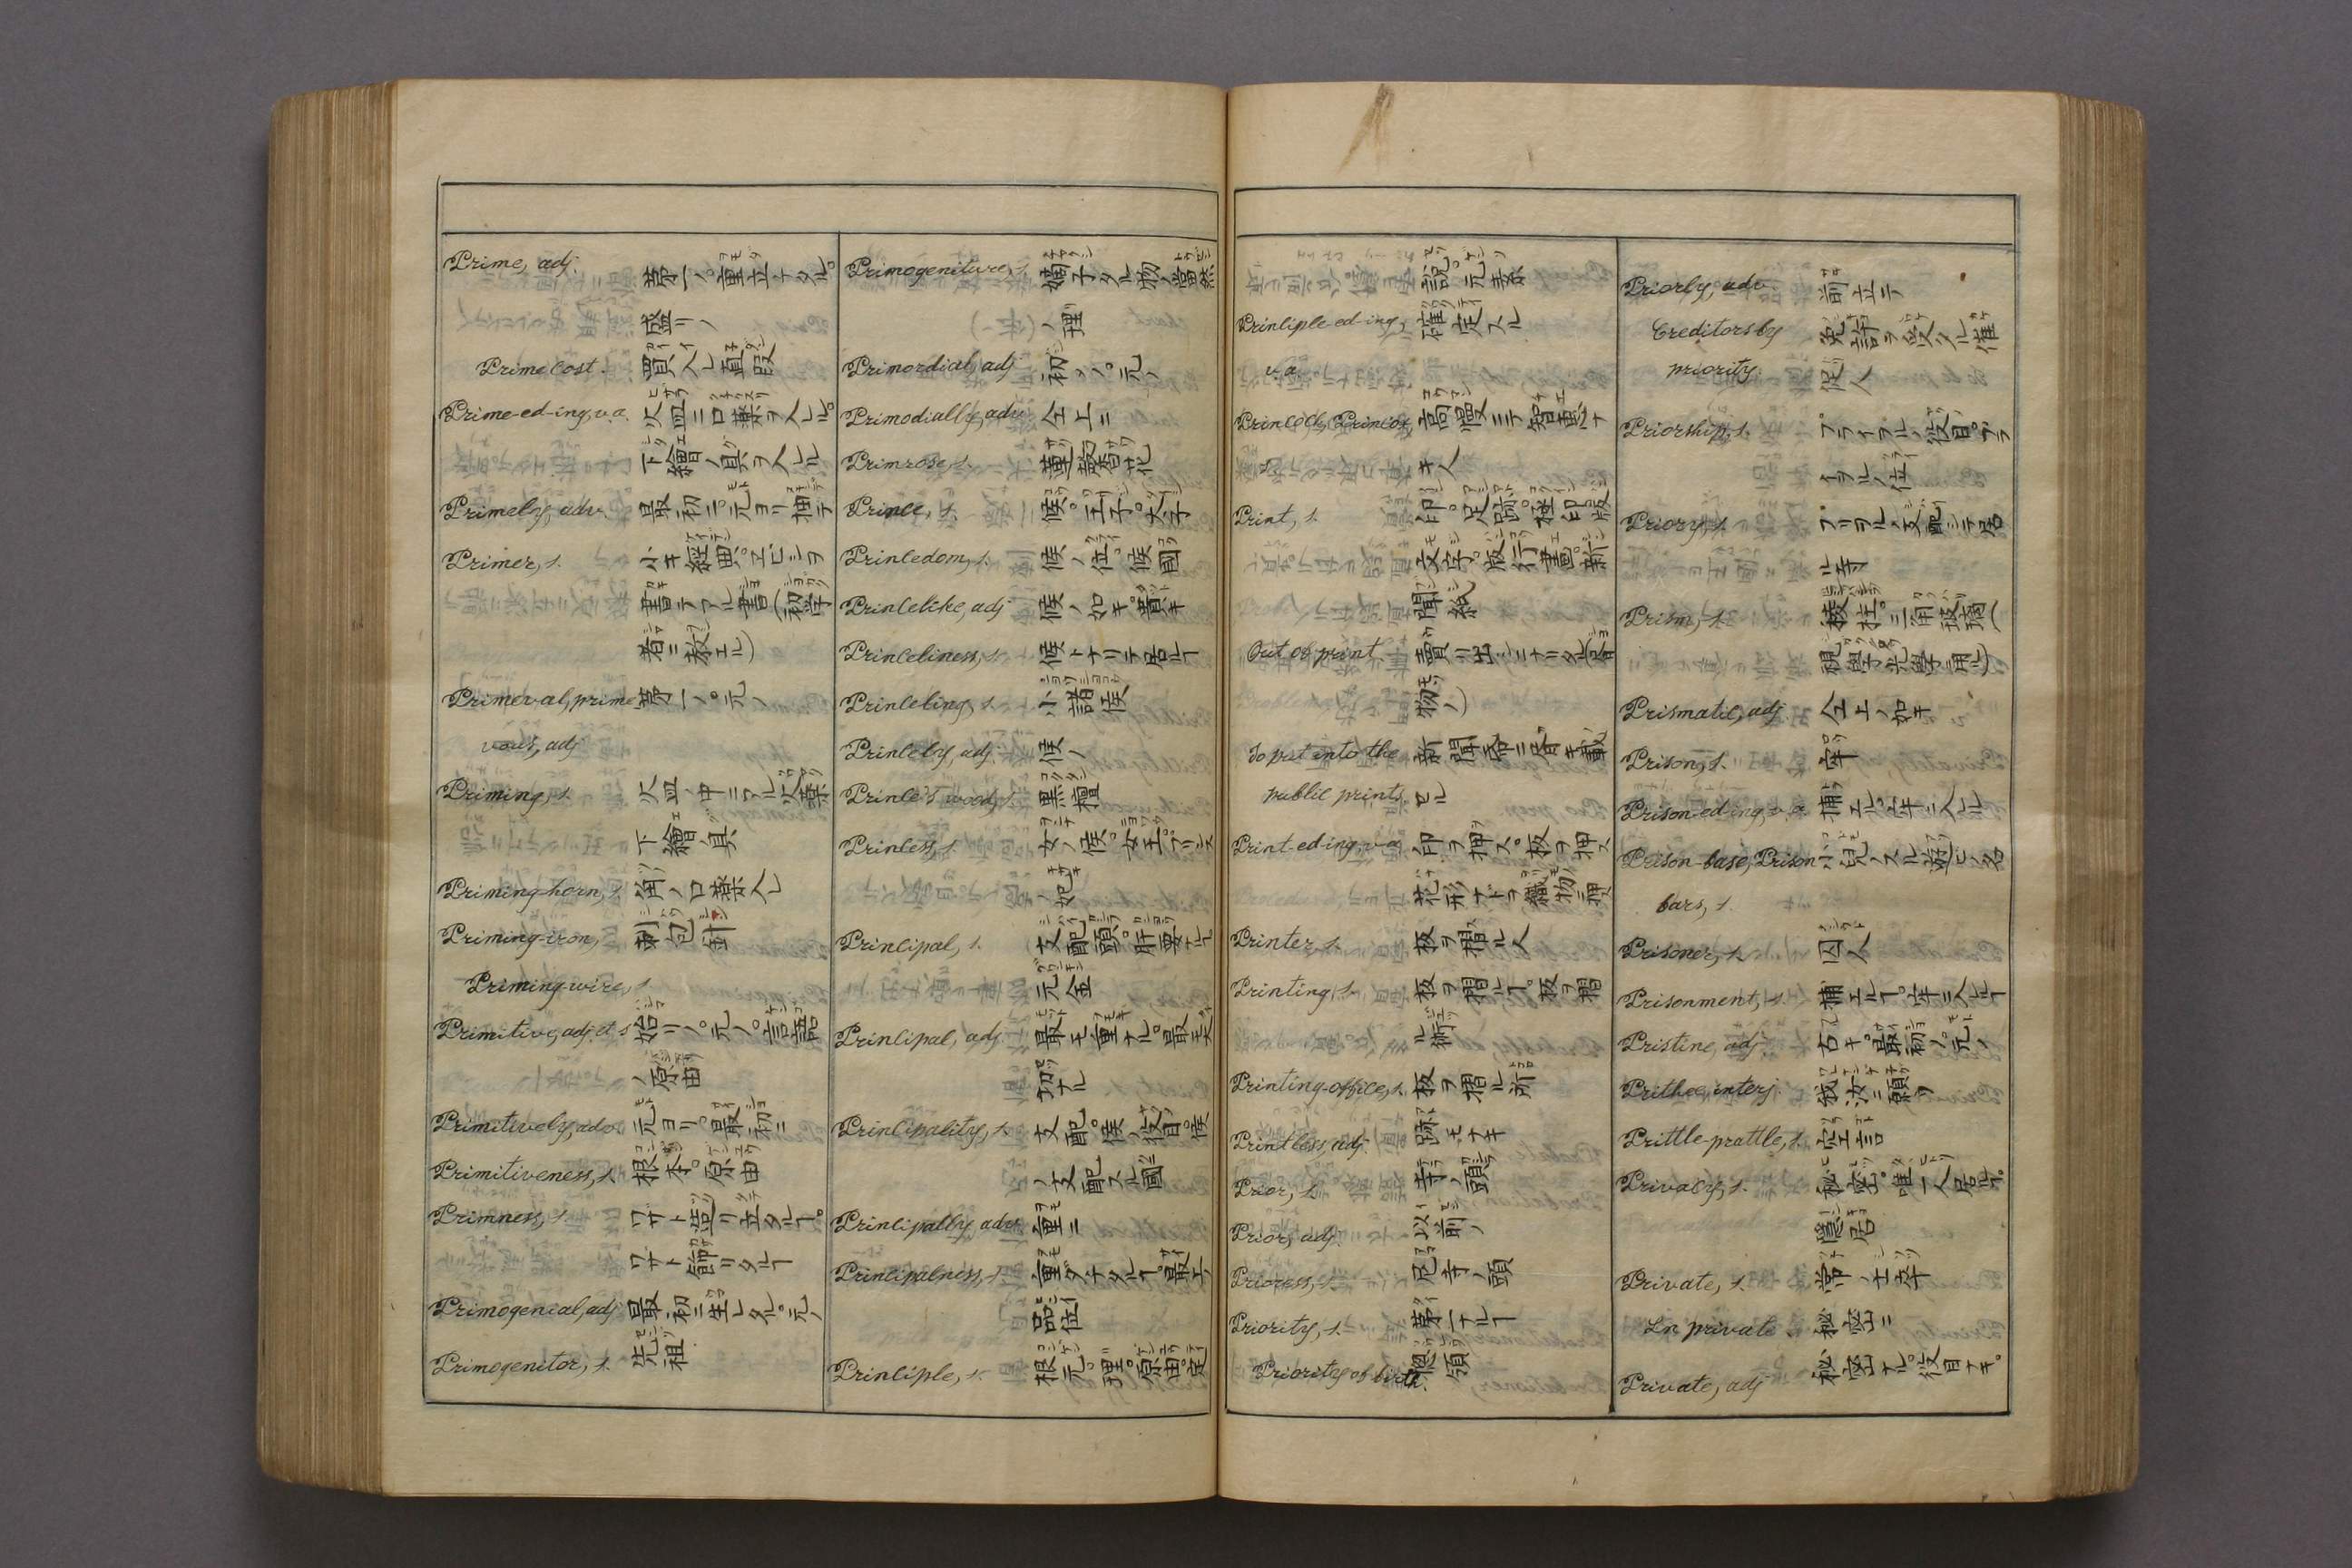 Prime, adj. 第一ノ。重立チタル。
盛リノ
Prime cost. 買入レ直段
Prime-ed-ing, v.a. 火皿ニ口薬ヲ入ル。
下繪ノ具ヲ入ル
Primely, adv. 最初ニ。元ヨリ。
Primer, s. 小キ經典。
書テアル書(初学
者ニ教エル)
Primeval, prime 第一ノ。元ノ
vous, adj
Priming, s. 火皿ノ中ニアル火薬
下繪ノ具
Priming-horn, s. 角ノ口薬入レ
Priming-iron,
Priming-wire, s.
Primitive, adj. et s. 始リノ。元ノ。言語
ノ原由
Primitively, adv. 元ヨリ。最初ニ
Primitiveness, s. 根本。原由
Primness, s. ワザト造リ立タルヿ。
ワザト飾リタルヿ
Primogenial, adj 最初ニ生レタル。元ノ
Primogenitor, s. 先祖
Primogeniture, s. 嫡子タル物ノ當然
ノ理
Primordial, adj 初ノ。元ノ
Primodially, adv 仝上ニ
Primrose, s.
Prince, s. 候。王子。太子
Princedom, s. 候ノ位。候國
Princelike, adj 候ノ如キ。貴キ
Princeliness, s. 候トナリテ居ルヿ
Princeling, s. 小諸侯
Princely, adj. 候ノ
Prince's wood, s. 黒檀
Princess, s. 女ノ候。女王。プリンス
ノ妃
Principal, s. 支配頭。肝要ナルヿ
元金
Principal, adj. 最モ重ナル。最大
切ナル
Principality, s. 支配。候ノ役目。候
ノ支配スル國
Principally, adv 重ニ
Principalness, s. 重ダチタルヿ。最上
品位
Principle, s. 根元。理。原由。定
說。元素
Principle-ed-ing, 確定スル
v.a
Princock, Princox, 高慢ニテ智恵ナ
s. キ人
Print, s. 印。足跡。極印版
文字。版行畫。新
聞紙
Out of print 賣リ出シニナリタル(書
物ノ)
To put into the 新聞紙ニ書キ載
public prints. セル
Print-ed-ing, v.a 印ヲ押ス。板ヲ押ス
花形ナドヲ織物ニ押ス
Printer, s. 板ヲ摺ル人
Printing, s. 板ヲ摺ルヿ。板ヲ摺
ル術
Printing-office, s. 板ヲ摺ル所
Printless, adj. 跡モナキ
Prior, s. 寺ノ頭
Prior, adj. 以前ノ
Prioress, s. 尼寺ノ頭
Priority, s. 第一ナルヿ
Priority of birth. 惣領
Priorly, adv 前立テ
Creditors by 免許ヲ受タル催
priority. 促人
Priorship, s. プライヲルノ役目。プラ
イヲルノ位
Priory, s. プリヲルノ支配シテ居
ル寺
Prism, s. 稜柱。三角玻璃(
視學光學ニ用ル)
Prismatic, adj. 仝上ノ如キ
Prison, s. 牢
Prison-ed-ing, v.a. 捕エル。牢ニ入ル
Prison-base, Prison 小兒ノスル遊ビノ名
bars, s.
Prisoner, s. 囚人
Prisonment, s. 捕エルヿ。牢ニ入ルヿ
Pristine, adj. 古キ。最初ノ。元ノ
Prithee, interj. 我汝ニ願フ
Prittle-prattle, s. 空言
Privacy, s. 秘密。唯一人居ルヿ。
隠居
Private, s. 常ノ士卒
In private. 秘密ニ
Private, adj 秘密ナル。役目ナキ。